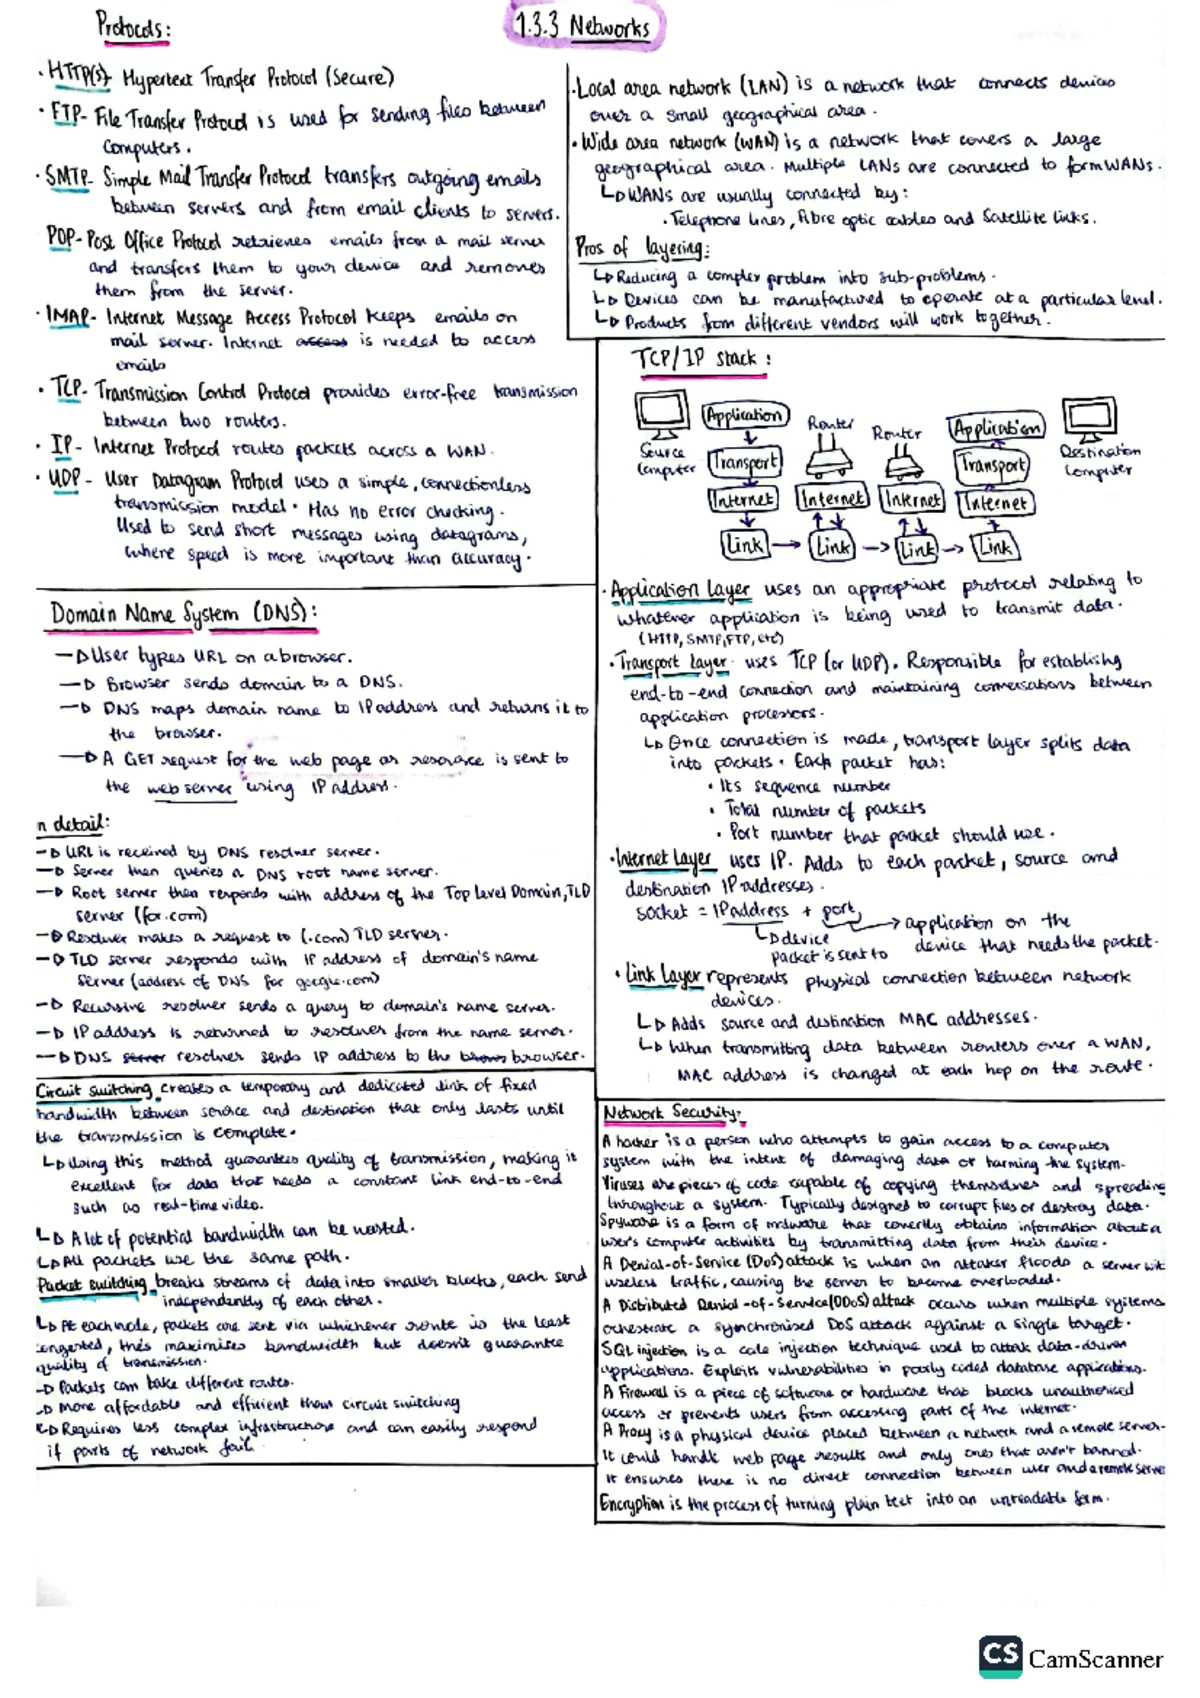 1.3.3 Networks
Protocols:
· HTTP(S)- Hypertext Transfer Protocol (Secure)
· FTP- File Transfer Protocol is used for sending files between
computers.
· SMTP- Simple Mail Transfer Protocol transfers outgoing emails
between servers and from email clients to servers.
POP- Post Office Protocol retrieves emails from a mail server
and transfers them to your device and removes
them from the server.
· IMAP- Internet Message Access Protocol keeps emails on
mail server. Internet access is needed to access
emails
· TCP- Transmission Control Protocol provides error-free transmission
between two routers.
· IP- Internet Protocol routes packets across a WAN.
· UDP- User Datagram Protocol uses a simple, connectionless
transmission model. Has no error checking.
Used to send short messages using datagrams,
where speed is more important than accuracy.
Domain Name System (DNS):
→ User types URL on a browser.
→ Browser sends domain to a DNS.
→ DNS maps domain name to IP address and returns it to
the browser.
→ A GET request for the web page or resource is sent to
the web server using IP address.
n detail:
→ URL is received by DNS resolver server.
→ Server then queries a DNS root name server.
→ Root server then responds with address of the Top Level Domain, TLD
server (for.com)
→ Resolver makes a request to (.com) TLD server.
→ TLD server responds with IP address of domain's name
server (address of DNS for google.com)
→ Recursive resolver sends a query to domain's name server.
→ IP address is returned to resolver from the name server.
→ DNS server resolver sends IP address to the brows browser.
Circuit switching creates a temporary and dedicated link of fixed
bandwidth between source and destination that only lasts until
the transmission is complete.
↳ Using this method guarantees quality of transmission, making it
excellent for data that needs a constant link end-to-end
such as real-time video.
↳ A lot of potential bandwidth can be wasted.
↳ All packets use the same path.
Packet switching breaks streams of data into smaller blocks, each send
independently of each other.
↳ At each node, packets are sent via whichever route is the least
congested, this maximises bandwidth but doesn't guarantee
quality of transmission.
→ Packets can take different routes.
→ more affordable and efficient than circuit switching
→ Requires less complex infrastructure and can easily respond
if parts of network fail.
· Local area network (LAN) is a network that connects devices
over a small geographical area.
· Wide area network (WAN) is a network that covers a large
geographical area. Multiple LANs are connected to form WANs.
↳ WANs are usually connected by:
· Telephone lines, fibre optic cables and Satellite links.
Pros of layering:
↳ Reducing a complex problem into sub-problems.
↳ Devices can be manufactured to operate at a particular level.
↳ Products from different vendors will work together.
TCP/IP stack:
Application Router Router Application
Source Computer Transport Transport Destination Computer
Internet Internet Internet Internet
Link → Link → Link → Link
· Application Layer uses an appropriate protocol relating to
whatever application is being used to transmit data.
(HTTP, SMTP, FTP, etc)
· Transport Layer uses TCP (or UDP). Responsible for establishing
end-to-end connection and maintaining conversations between
application processors.
↳ Once connection is made, transport layer splits data
into packets. Each packet has:
· Its sequence number
· Total number of packets
· Port number that packet should use.
· Internet Layer uses IP. Adds to each packet, source and
destination IP addresses.
socket = IP address + port
→ application on the
device that needs the packet.
↳ device
packet is sent to
· Link Layer represents physical connection between network
devices.
↳ Adds source and destination MAC addresses.
↳ When transmitting data between routers over a WAN,
MAC address is changed at each hop on the route.
Network Security:
A hacker is a person who attempts to gain access to a computer
system with the intent of damaging data or harming the system.
Viruses are pieces of code capable of copying themselves and spreading
throughout a system. Typically designed to corrupt files or destroy data.
Spyware is a form of malware that covertly obtains information about a
user's computer activities by transmitting data from their device.
A Denial-of-Service (DoS) attack is when an attaker floods a server wit
useless traffic, causing the server to become overloaded.
A Distributed Denial-of-Service (DDoS) attack occurs when multiple systems
orchestrate a synchronised DoS attack against a single target.
SQL injection is a code injection technique used to attak data-driven
applications. Exploits vulnerabilities in poorly coded database applications.
A Firewall is a piece of software or hardware that blocks unauthorised
access or prevents users from accessing parts of the internet.
A Proxy is a physical device placed between a network and a remote server.
It could handle web page results and only ones that aren't banned.
It ensures there is no direct connection between user and a remote serve
Encryption is the process of turning plain text into an unreadable form.
CS CamScanner